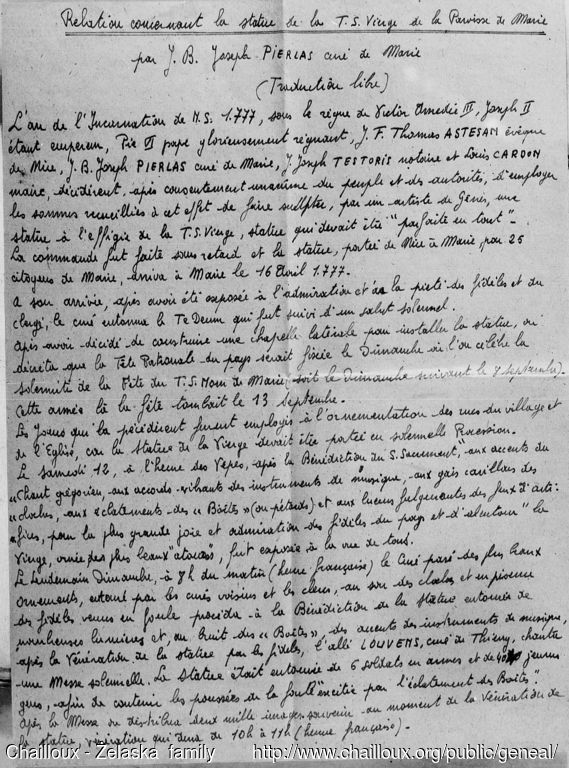 Relation concernant la statue de la T.S. Vierge de la Paroisse de Marie
par J. B. Joseph PIERLAS curé de Marie
(Traduction libre)
L'an de l'Incarnation de N.S. 1.777, sous le règne de Victor Amedée III, Joseph II
étant empereur, Pie VI pape glorieusement régnant, J. F. Thomas ASTESAN évêque
de Nice, J.B. Joseph PIERLAS curé de Marie, J. Joseph TESTORIS notaire et Louis CARDON
maire, décidèrent, après consentement unanime du peuple et des autorités, d'employer
les sommes recueillies à cet effet de faire sculpter, par un artiste de Gênes, une
statue à l'effigie de la T.S. Vierge, statue qui devait être "parfaite en tout".
La commande fut faite sans retard et la statue, portée de Nice à Marie, par 25
citoyens de Marie, arriva à Marie le 16 Avril 1.777.
A son arrivée, après avoir été exposée à l'admiration et à la piété des fidèles et du
clergé, le curé entonna le Te Deum qui fut suivi d'un salut solennel.
Après avoir décidé de construire une chapelle latérale pour installer la statue, on
décréta que la Fête Patronale du pays serait fixée le Dimanche où l'on célèbre la
solemnité de la Fête du T.S. Nom de Marie (soit le Dimanche suivant le 8 septembre).
Cette année là la fête tombait le 13 septembre.
Les Jours qui la précédèrent furent employés à l'ornementation des rues du village et
de l'Eglise, car la statue de la Vierge devait être portée en solennelle Procession.
Le samedi 12, à l'heure des Vêpres, après la Bénédiction du S. Sacrement, "aux accents du
"Chant grégorien, aux accords vibrants des instruments de musique, aux gais carillons des
"cloches, aux éclatements des « Boîtes » (ou pétards) et aux lueurs fulgurantes des feux d'arti-
"fices, pour la plus grande joie et admiration des fidèles du pays et d'alentour" la
Vierge, ornée des plus beaux "atours", fut exposée à la vue de tous.
Le lendemain Dimanche, à 8h du matin (heure française) le Curé paré des plus beaux
ornements, entouré par les curés voisins et les clercs, au son des cloches et en présence
des fidèles venus en foule procéda à la Bénédiction de la statue entourée de
nombreuses lumières et, au bruit des « Boîtes », des accents des instruments de musique,
après la Vénération de la statue par les fidèles, l'abbé LOUVENS, curé de Thiery, chanta
une Messe solennelle. La statue était entourée de 6 soldats en armes et de jeunes
gens, afin de contenir les poussées de la foule "excitée par l'éclatement des Boîtes".
Après la Messe on distribua deux mille images-souvenir au moment de la Vénération de
la statue, vénération qui dura de 10h à 11h (heure française).
Chailloux - Zelaska family http://www.chailloux.org/public/geneal/